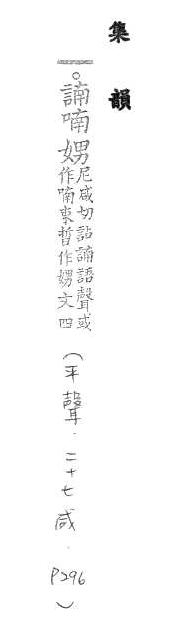 集韻
○諵喃娚
尼咸切詀諵語聲或
作喃束晳作娚文四
(平聲.二十七咸.P296)